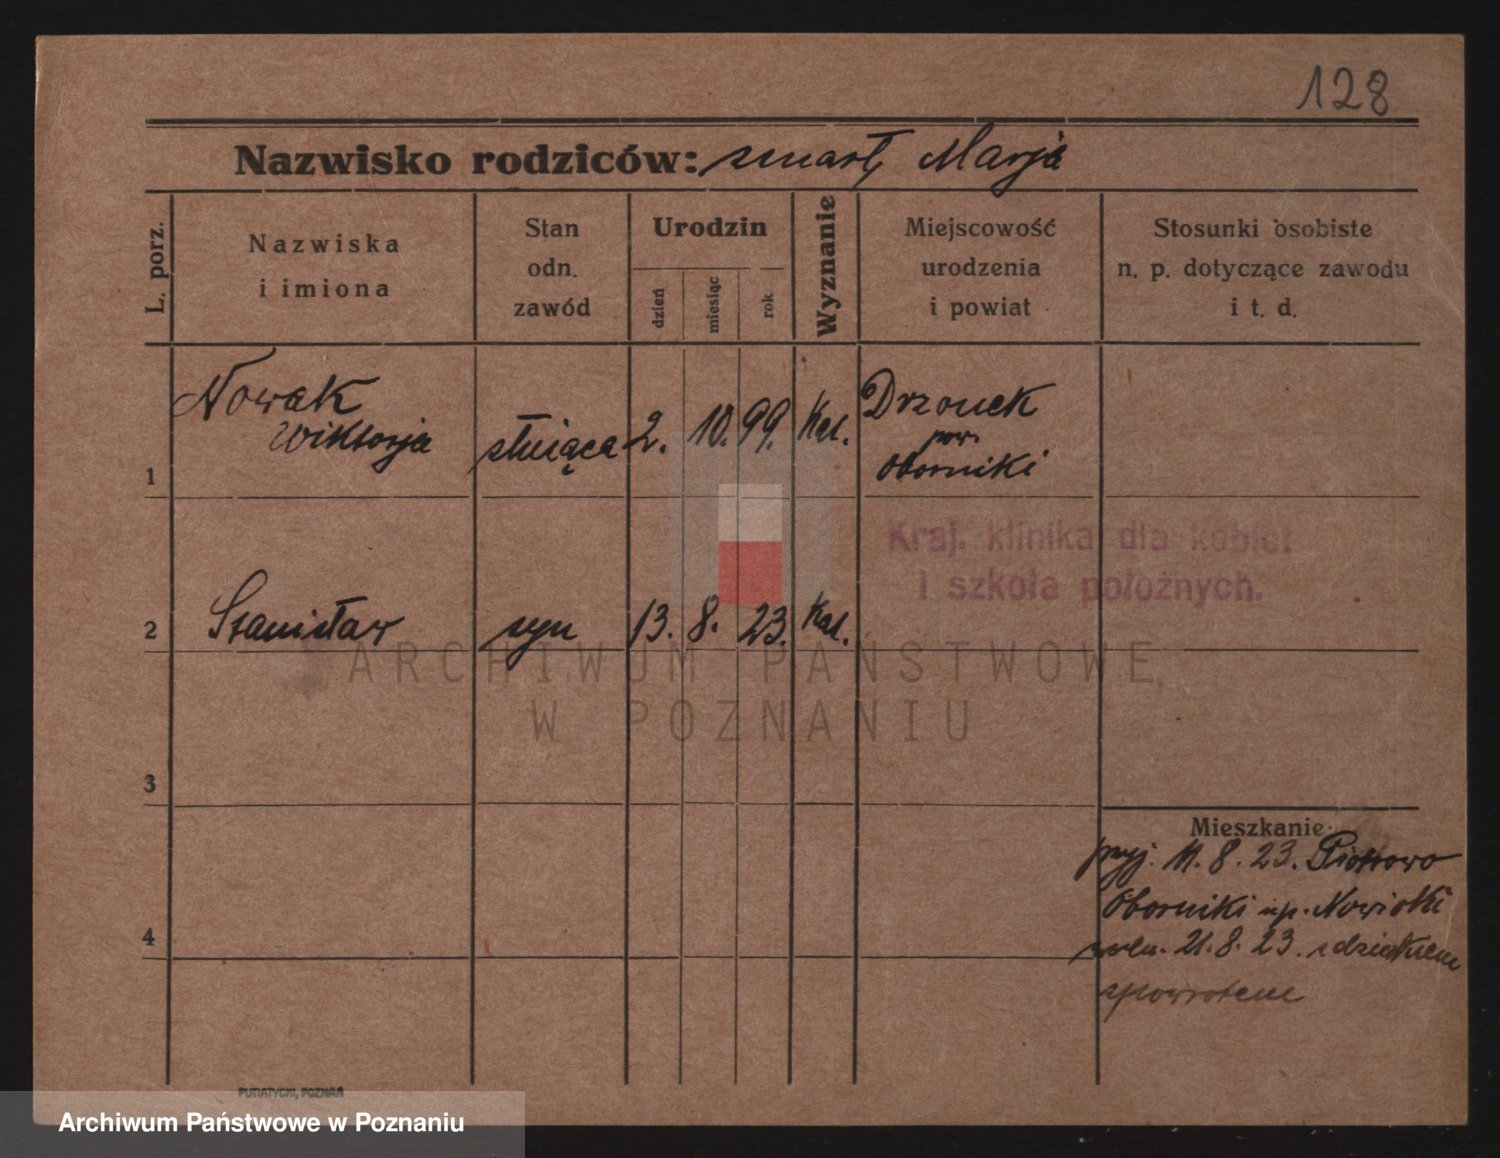 128
Nazwisko rodziców: zmarły Marja
L. porz.
Nazwiska
i imiona
Stan
odn.
zawód
Urodzin
dzień
miesiąc
rok
Wyznanie
Miejscowość
urodzenia
i powiat
Stosunki osobiste
n. p. dotyczące zawodu
i t. d.
1
Nowak
Wiktorja
służąca 2. 10. 99. Kat.
Drzonek
pow.
Oborniki
Kraj. klinika dla kobiet
i szkoła położnych.
2
Stanisław
syn 13. 8. 23. Kat.
ARCHIWUM PAŃSTWOWE
W POZNANIU
3
Mieszkanie
przyj. 11. 8. 23. Piotrowo
Oborniki up.
4
21. 8. 23. z dzieckiem
spowrotem
PUTIATYCKI, POZNAŃ
Archiwum Państwowe w Poznaniu